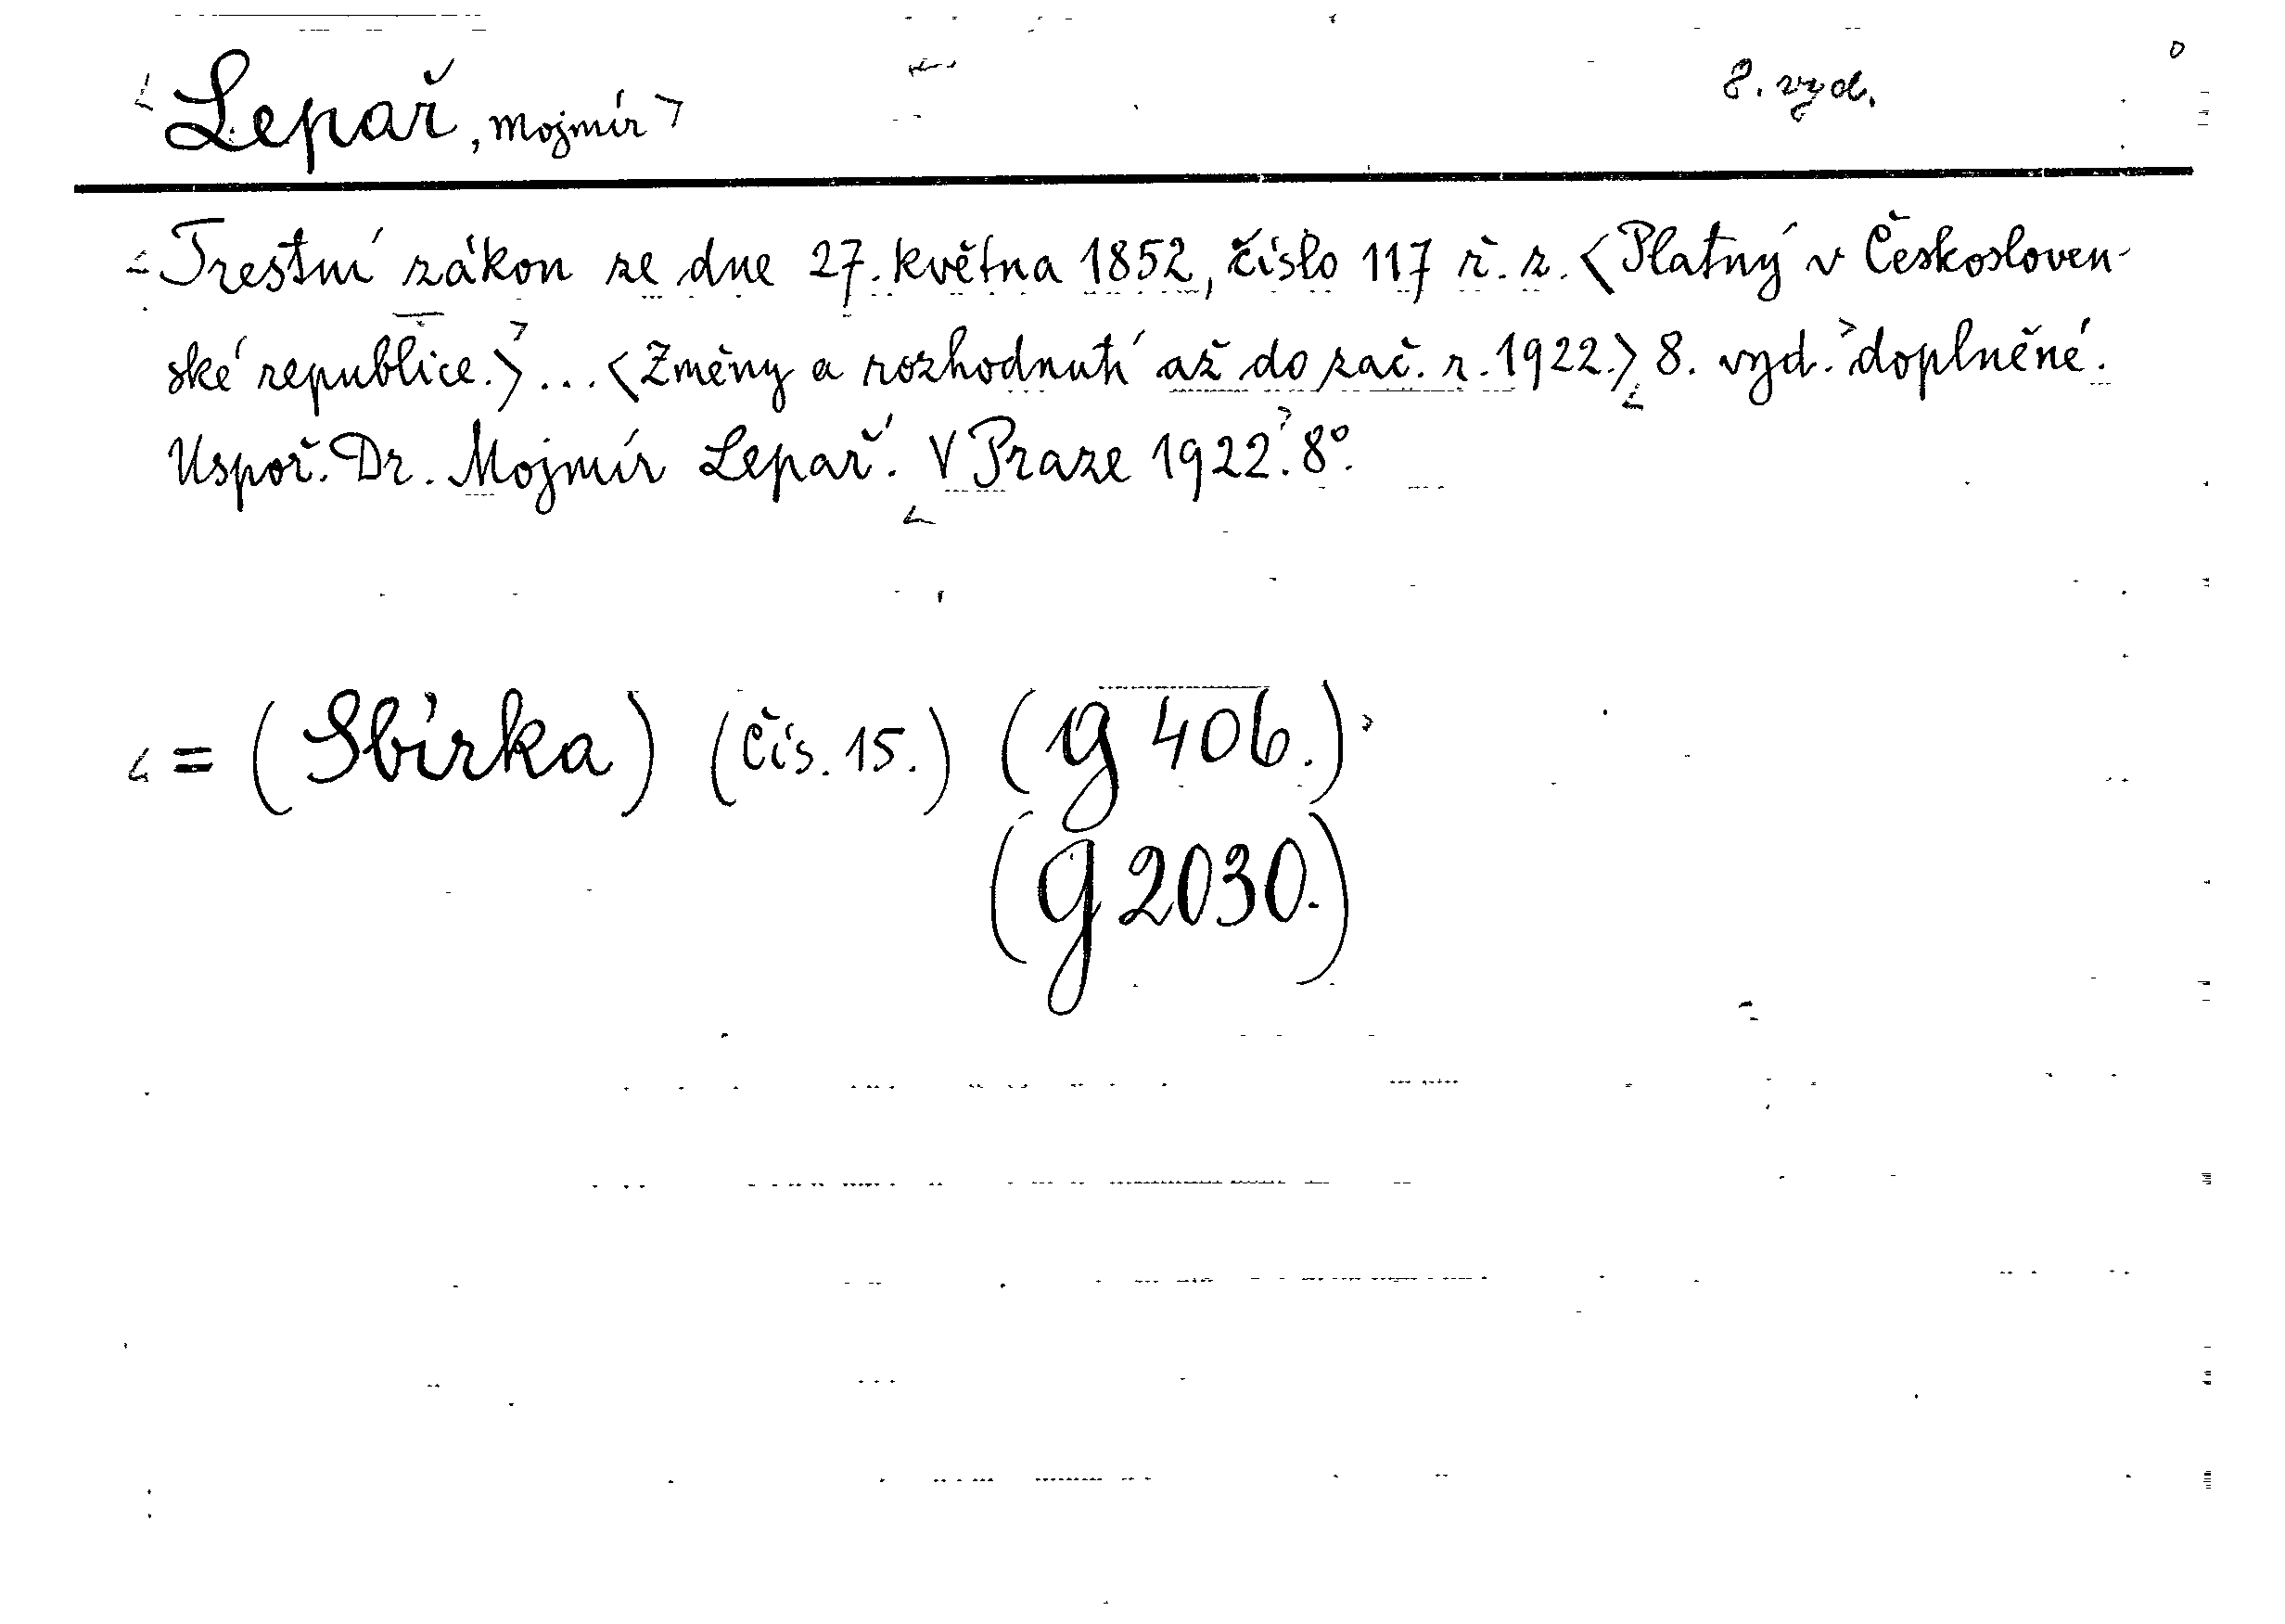 Lepař, Mojmír
8. vyd.
Trestní zákon ze dne 27. května 1852, číslo 117 ř. z. <Platný v Českosloven-
ské republice.> ... <Změny a rozhodnutí až do zač. r. 1922.> 8. vyd. doplněné.
Uspoř. Dr. Mojmír Lepař. V Praze 1922. 8°.
= (Sbírka) (čís. 15.) (g 406.)
(g 2030.)